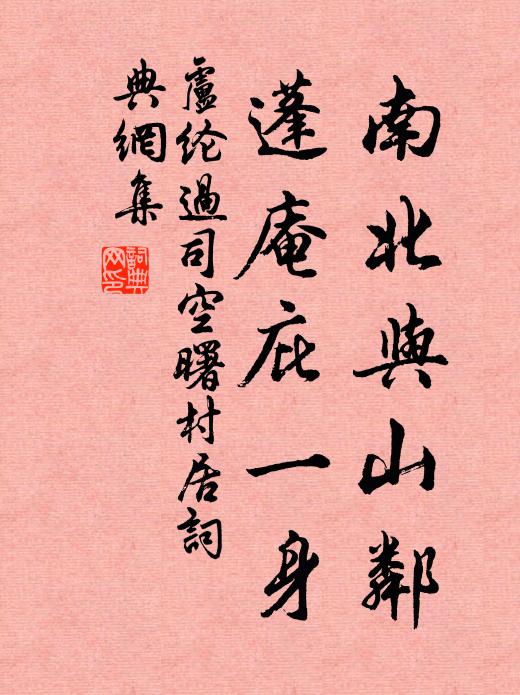 南北與山鄰
蓬庵庇一身
盧纶過司空曙村居詞
典網集
詞典
网印